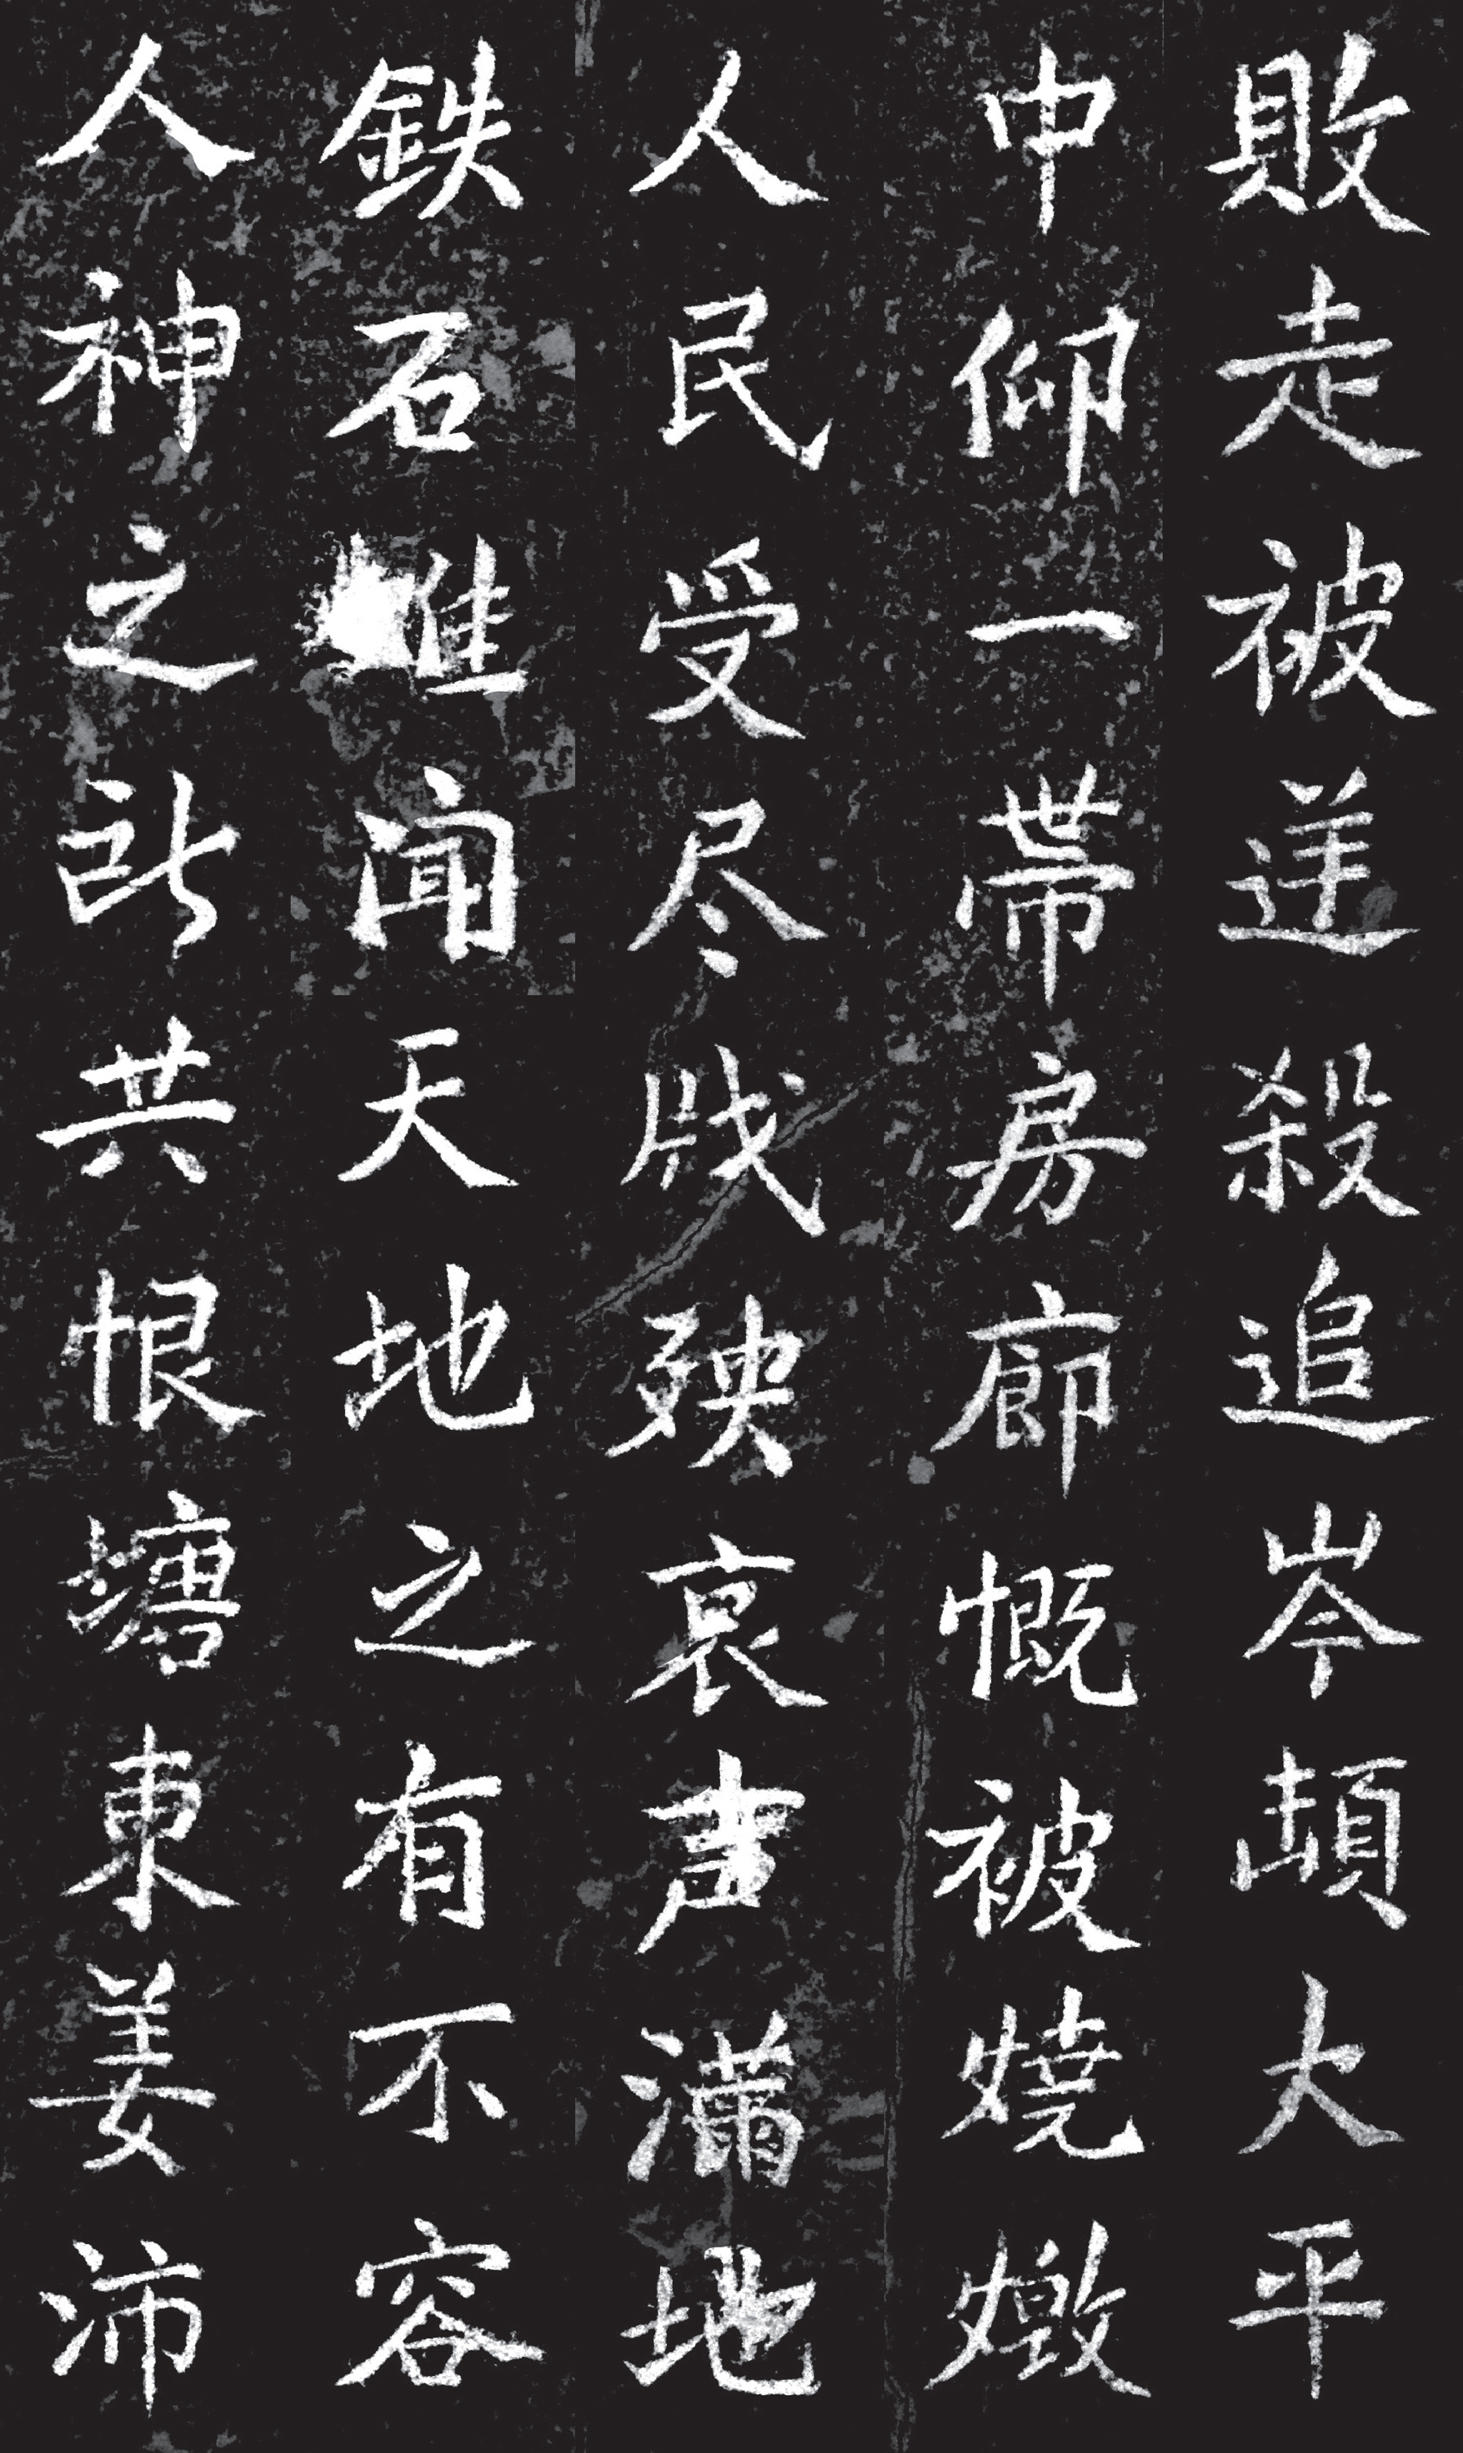 敗走被逆殺追岑頡大平
中仰一帶房廊慨被燒燬
人民受尽戕殃哀声滿地
鉄石難闻天地之有不容
人神之所共恨塘東姜沛